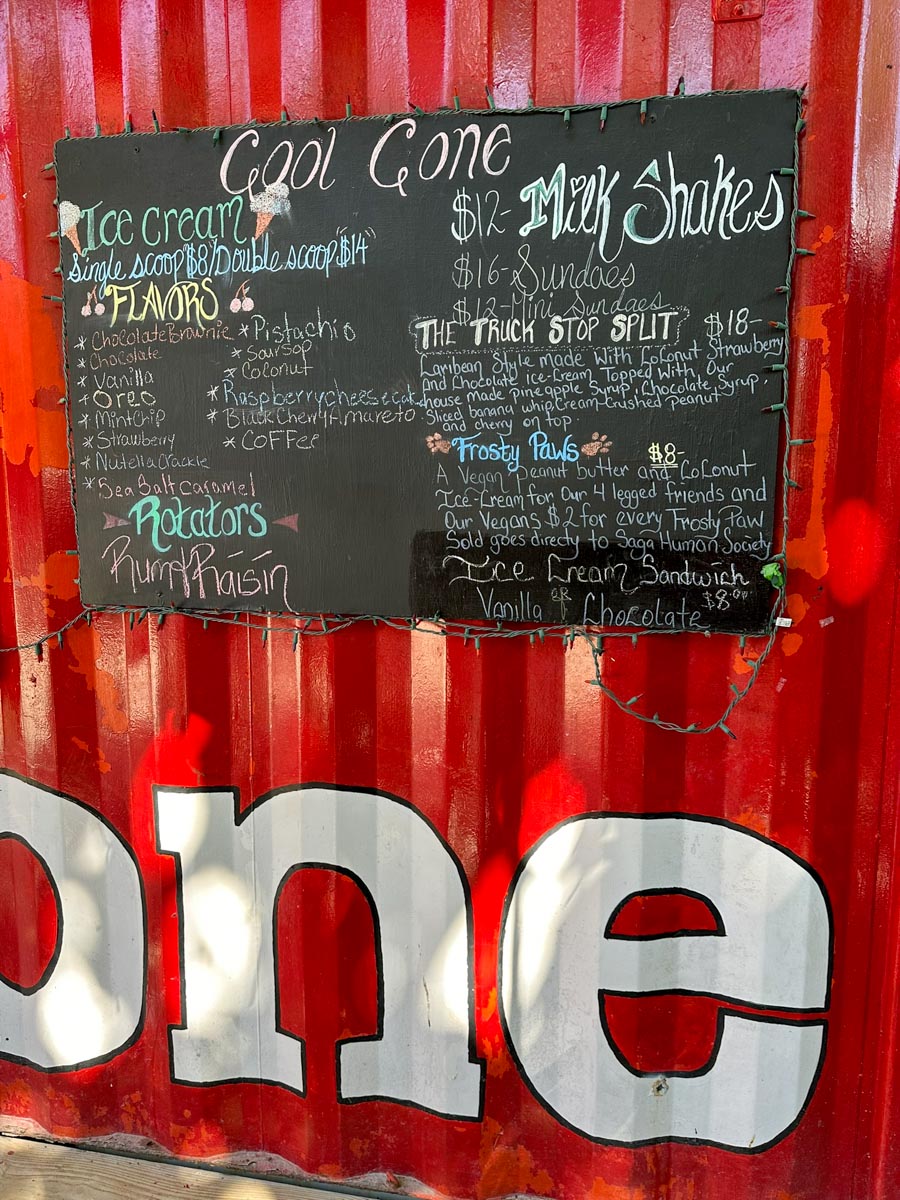 Cool Cone
Ice cream
single scoop "$8"/Double scoop "$14"
FLAVORS
* Chocolate Brownie
* Chocolate
* Vanilla
* Oreo
* Mint Chip
* Strawberry
* Nutella Crackle
* Sea Salt caramel
* Pistachio
* Soursop
* Coconut
* Raspberry cheesecake
* Black Cherry Amareto
* COFFee
Rotators
Rum & Raisin
$12- Milk Shakes
$16- Sundaes
$12- Mini Sundaes
THE TRUCK STOP SPLIT $18-
Caribean Style made With CoConut Strawberry
And Chocolate ice-Cream Topped With, Our
house made pineapple Syrup, Chocolate Syrup,
Sliced banana whip Cream-Crushed peanut
and cherry on top.
Frosty Paws $8-
A Vegan Peanut butter and CoConut
Ice-Cream for Our 4 legged friends and
Our Vegans $2 for every Frosty Paw
Sold goes directy to Saga Human Society
Ice Cream Sandwich
$8.00
Vanilla or Chocolate
one